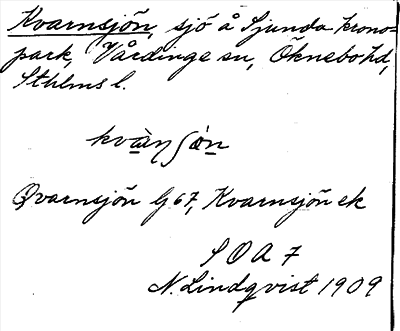 Kvarnsjön, sjö å Sjunda krono-
park, Vårdinge sn, Öknebo hd,
Sthlms l.
kvàɳʃön
Qvarnsjön G 67, Kvarnsjön ek
S O A 7
N. Lindqvist 1909